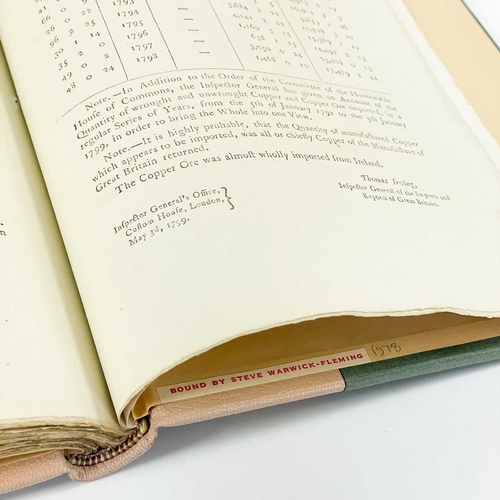 1793
94 0 21 1794
50 2 1795
96 1 14 1796
30 0 1797
35 0 2 1798
48 0 24
Note.—In Addition to the Order of the Committee of the Honourable
House of Commons, the Inspector General has given an Account of the
Quantity of wrought and unwrought Copper and Copper Ore imported, in a
regular Series of Years, from the 5th of January 1791 to the 5th January
1799, in order to bring the Whole into one View.
Note.—It is highly probable, that the Quantity of manufactured Copper
which appears to be imported, was all or chiefly Copper of the Manufacture of
Great Britain returned.
The Copper Ore was almost wholly imported from Ireland.
Thomas Irving,
Inspector General of the Imports and
Exports of Great Britain.
Inspector General's Office,
Custom House, London,
May 3d, 1799.
BOUND BY STEVE WARWICK-FLEMING 1978